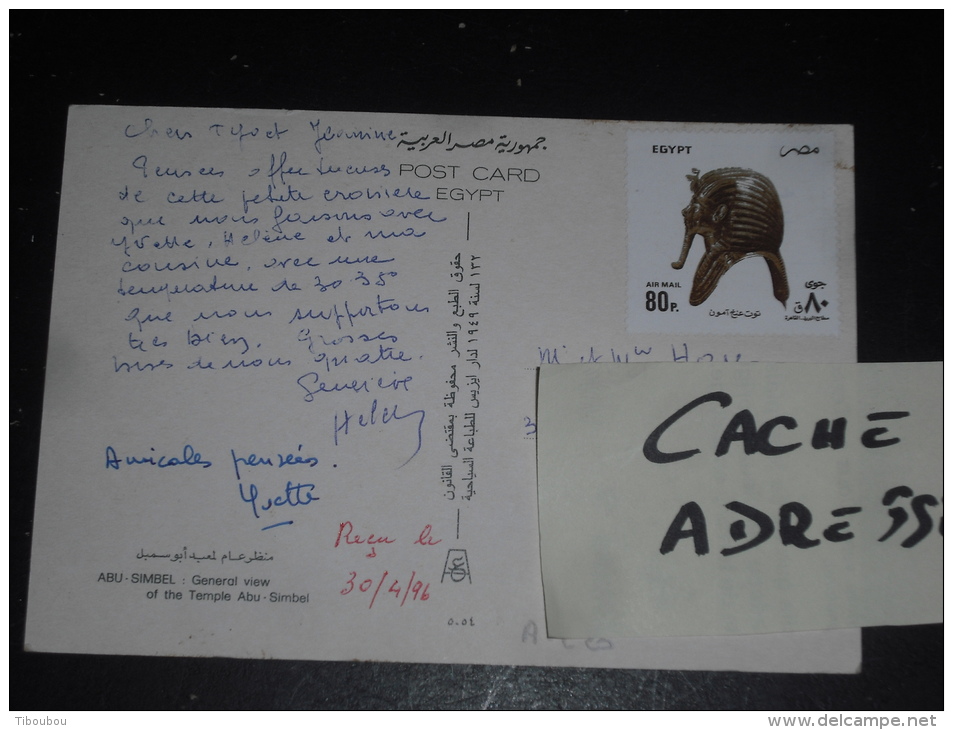 Chers Tyo et Jeannine
Pensées affectueuses
de cette petite croisière
que nous faisons avec
Yvette, Hélène et ma
cousine, avec une
température de 30 35°
que nous supportons
très bien. Grosses
bises de nous quatre.
Geneviève
Amicales pensées.
Yvette
Reçu le
30/4/96
منظر عام لمعبد أبو سمبل
ABU - SIMBEL : General view
of the Temple Abu - Simbel
جمهورية مصر العربية
POST CARD
EGYPT
حقوق الطبع والنشر محفوظة بمقتضى القانون
١٣٢ لسنة ١٩٤٩ لدار ايزيس للطباعة السياحية
٥٠٥٤
EGYPT
مصر
AIR MAIL
80 P.
توت عنخ آمون
جوى
٨٠ ق
M et Mme
CACHE
ADRESSE
Tiboubou
www.delcampe.net